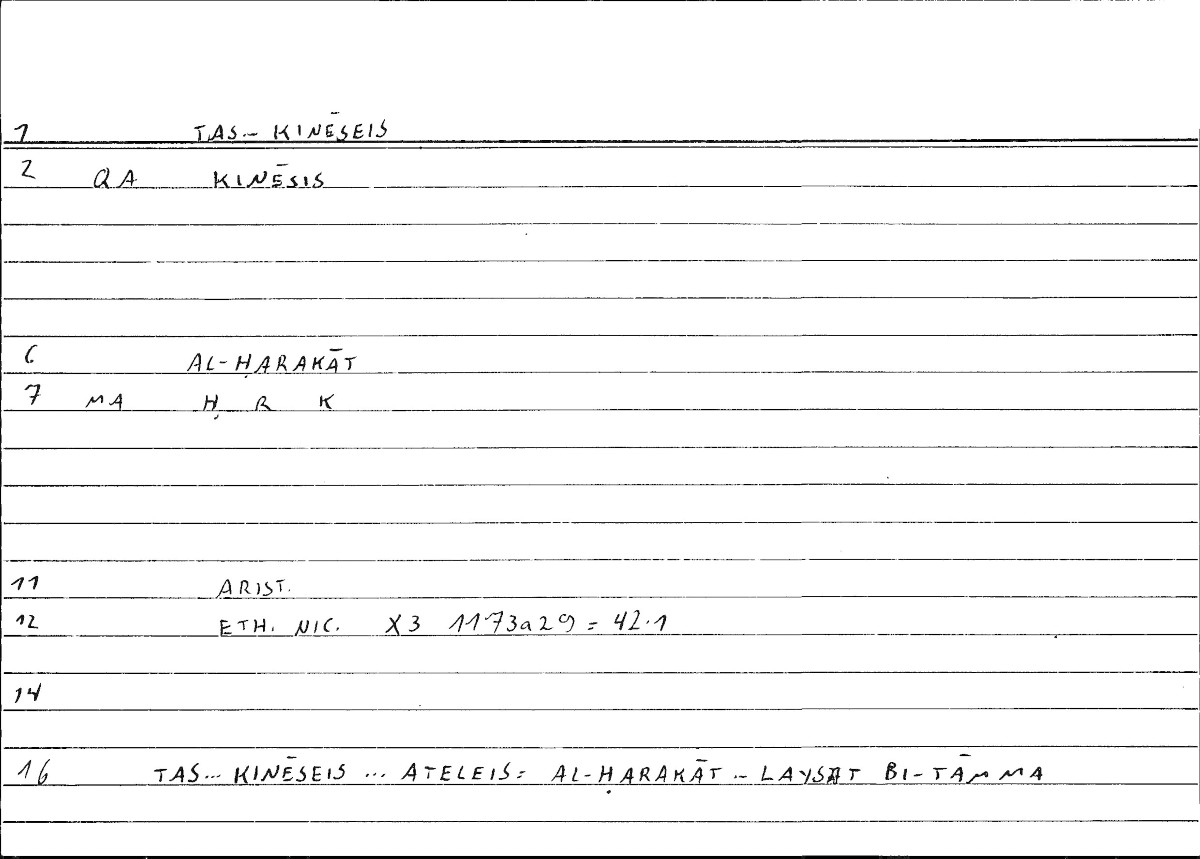 1 TAS... KINĒSEIS
2 QA KINĒSIS
6 AL-ḤARAKĀT
7 MA Ḥ R K
11 ARIST.
12 ETH. NIC. X3 1173a29 = 42.1
14
16 TAS... KINĒSEIS ... ATELEIS = AL-ḤARAKĀT ... LAYSAT BI-TĀMMA